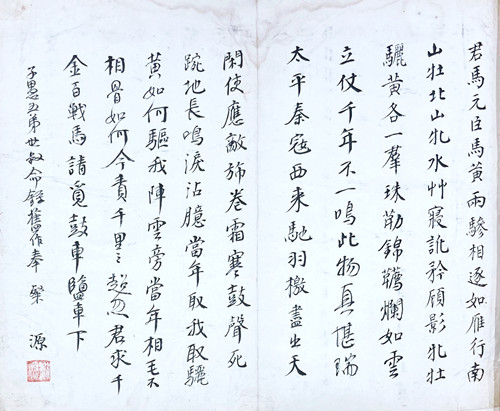 君馬元臣馬黃兩驂相逐如雁行南
山牡北山牝水艸寢訛矜顧影牝牡
驪黃各一羣珠勒錦韉爛如雲
立仗千年不一鳴此物真堪瑞
太平秦寇西來馳羽檄盡出天
閑使應敵旆卷霜寒鼓聲死
踠地長鳴淚沾臆當年取我取驪
黃如何驅我陣雲旁當年相毛不
相骨如何今責千里〻超忽君求千
金百戰馬請覓鼓車鹽車下
子愚五弟世叔命錄舊作奉 源